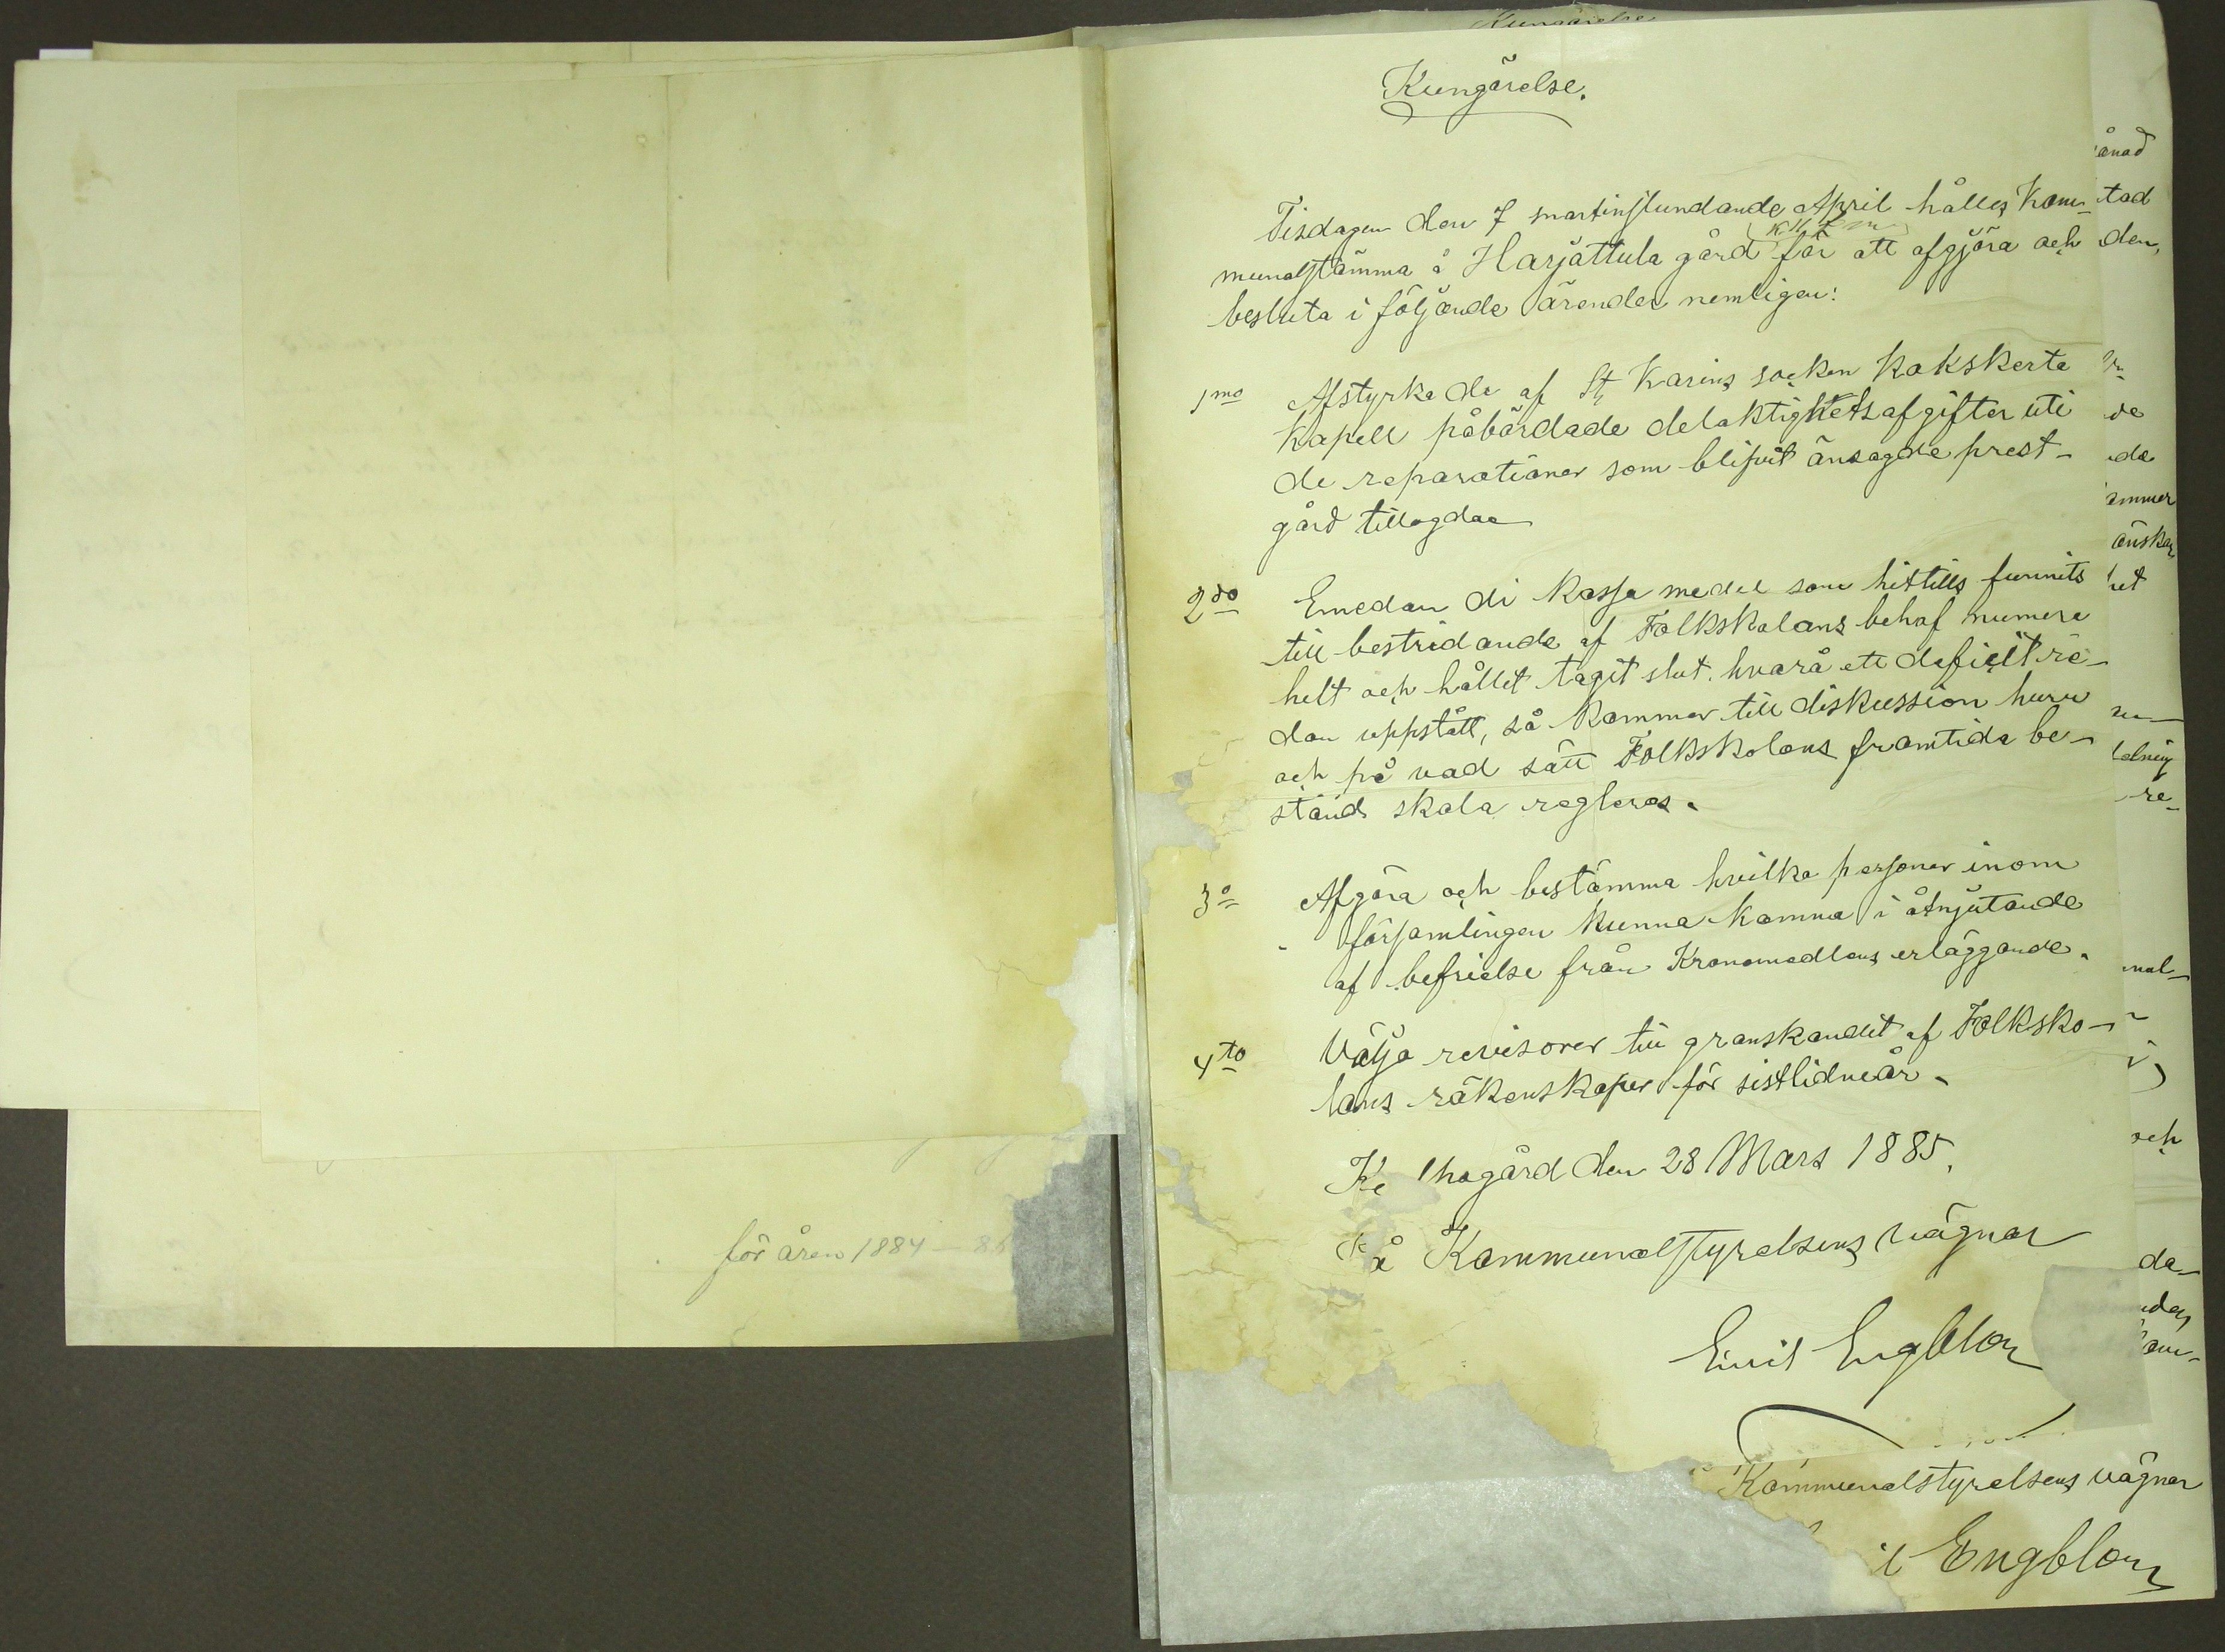 Kungörelse.
Tisdagen den 7 nästinstundande April hålles Kom-
kl 11 f m
munalstämma å Harjattula gård för att afgjöra och
besluta i följande ärender nemligen:
1mo Afstyrka de af St Karins socken Kakskerta
Kapell påbördade delaktighetsafgifter uti
de reparationer som blifvit ansagde prest-
gård tillagdae
2do Emedan di Kassa medel som hittills funnits
till bestridande af Folkskolans behof numera
helt och hållet tagit slut. hvarå ett deficilt re-
dan uppstått, så kommer till diskussion huru
och på vad sätt Folkskolans framtida be-
stånd skola regleras.
3o Afgöra och bestämma hvilka personer inom
församlingen kunna komma i åtnjutande
af befrielse från Kronomedlens erläggande.
4to Välja revisorer till granskandet af Folksko-
lans räkenskaper för sistlidne år.
Ke hogård den 28 Mars 1885.
å Kommunalstyrelsens vägnar
Emil Englblom
Kommunalstyrelsens vägnar
il Engblom
för åren 1884-86
ånad
tad
den,
de
ade
ammer
önskar
het
ldning
re-
mal-
och
da-
ndes
om-